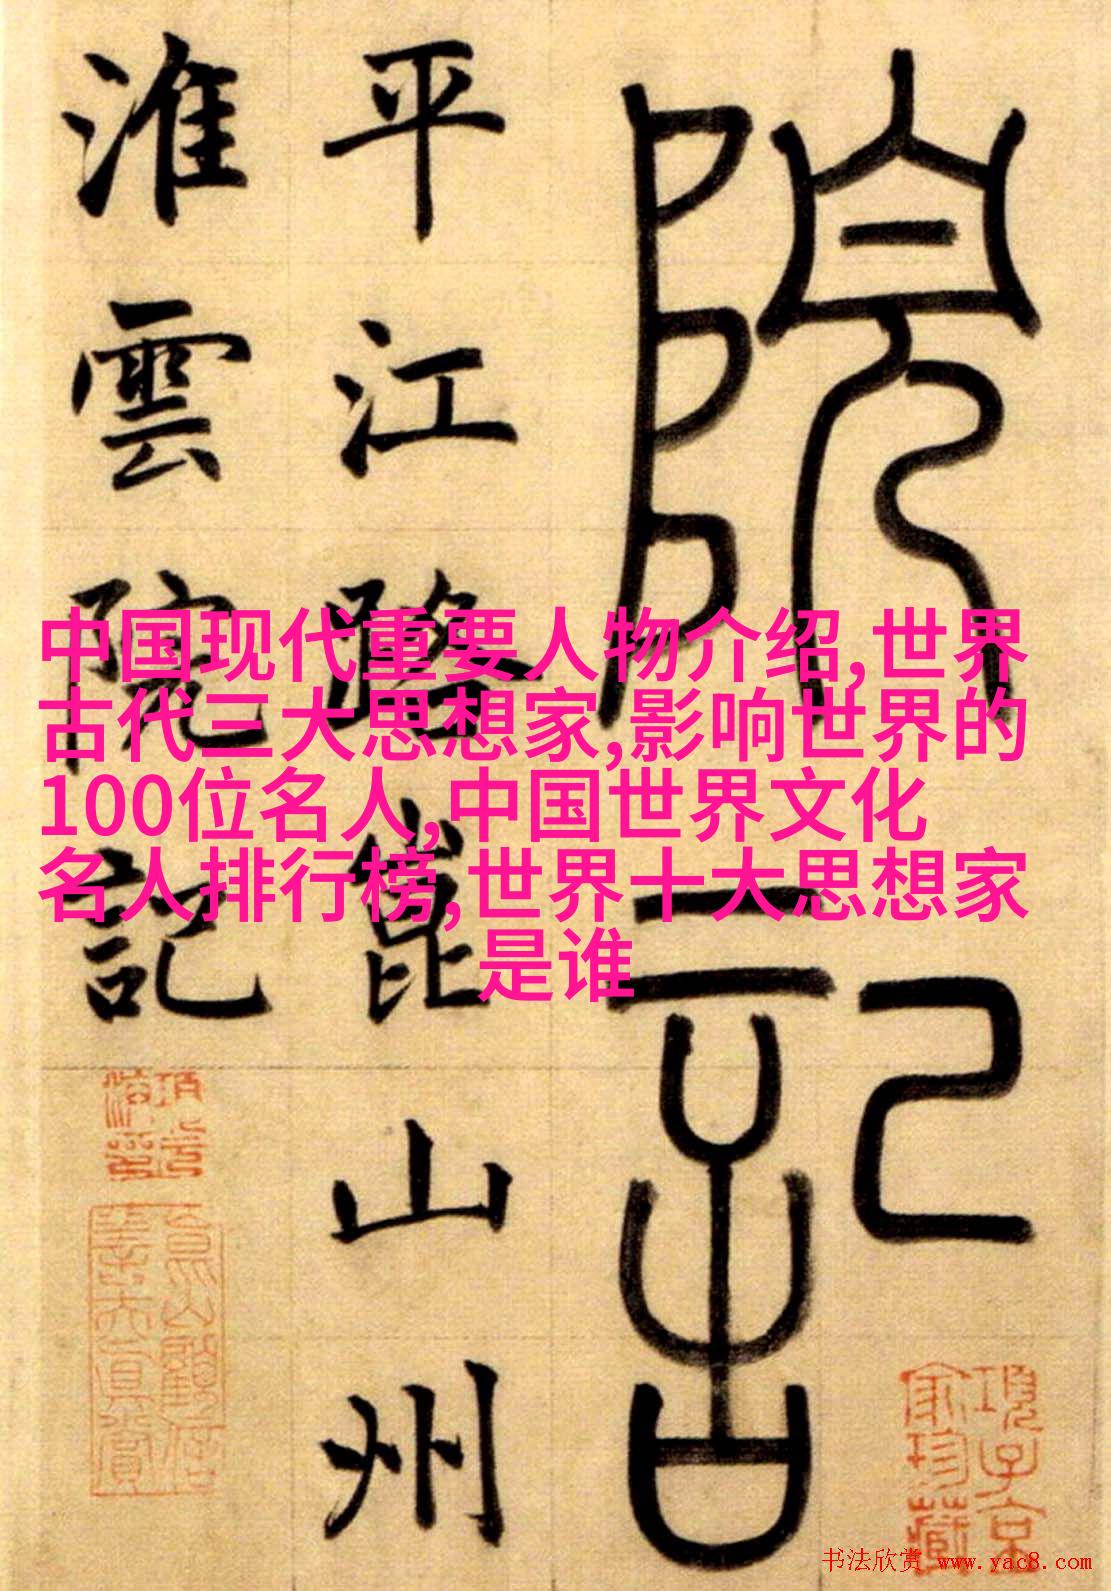 院記
平江路崑山州
淮雲院記
中国现代重要人物介绍,世界
古代三大思想家,影响世界的
100位名人,中国世界文化
名人排行榜,世界十大思想家
是谁
項子京
家珍藏
书法欣赏 www.yac8.com